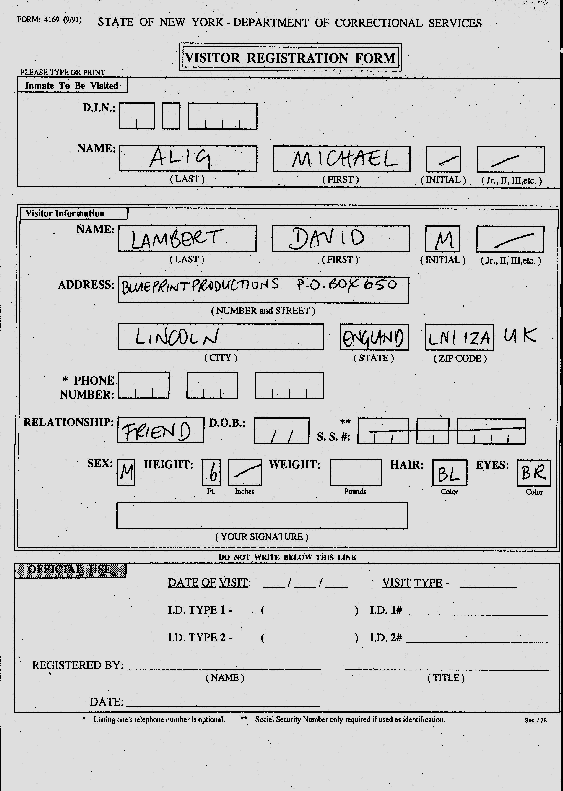 FORM: 4169 (9/91) STATE OF NEW YORK - DEPARTMENT OF CORRECTIONAL SERVICES
VISITOR REGISTRATION FORM
PLEASE TYPE OR PRINT
Inmate To Be Visited
D.I.N.:
NAME: ALIG MICHAEL
(LAST) (FIRST) (INITIAL) (Jr., II, III, etc.)
Visitor Information
NAME: LAMBERT DAVID M
(LAST) (FIRST) (INITIAL) (Jr., II, III, etc.)
ADDRESS: BLUEPRINT PRODUCTIONS P.O. BOX 650
(NUMBER and STREET)
LINCOLN ENGLAND LN1 1ZA UK
(CITY) (STATE) (ZIP CODE)
* PHONE
NUMBER:
RELATIONSHIP: FRIEND D.O.B.: / / ** S.S. #:
SEX: M HEIGHT: 6 WEIGHT: HAIR: BL EYES: BR
Ft. Inches Pounds Color Color
(YOUR SIGNATURE)
DO NOT WRITE BELOW THIS LINE
OFFICIAL USE
DATE OF VISIT: / / VISIT TYPE -
I.D. TYPE 1 - ( ) I.D. 1#
I.D. TYPE 2 - ( ) I.D. 2#
REGISTERED BY:
(NAME) (TITLE)
DATE:
* Listing one's telephone number is optional. ** Social Security Number only required if used as identification.